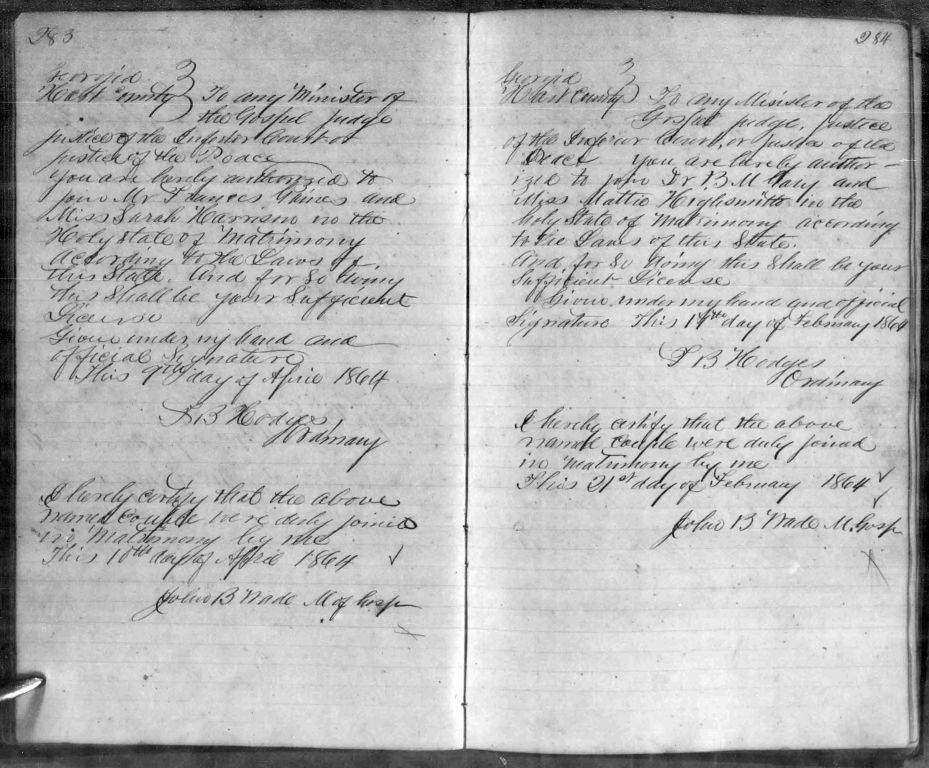 283
Georgia }
Hart County } To any Minister of
the Gospel Judge
Justice of the Inferior Court or
Justice of the Peace
You are herely authorized to
join Mr Frances Gaines and
Miss Sarah Harrison in the
Holy state of Matrimony
according to the Laws of
this State. And for So doing
this Shall be your Sufficient
License
Given under my hand and
official Signature
This 9th day of April 1864
B Hodges
Ordinary
I hereby certify that the above
named Couple were duly joined
in Matrimony by me
This 10th day of April 1864
John B Wade M of Gosp
284
Georgia }
Hart County } To any Minister of the
Gospel judge, justice
of the Inferior Court, or Justice of the
Peace You are hereby author-
ized to join Dr B M and
Miss Mattie Highsmith in the
holy State of Matrimony according
to the Laws of this State.
And for So doing this Shall be your
Sufficient License
Given under my hand and official
Signature This day of February 1864
B Hodges
Ordinary
I hereby certify that the above
named Couple were duly joined
in Matrimony by me
This 21st day of February 1864
John B Wade M. Gosp